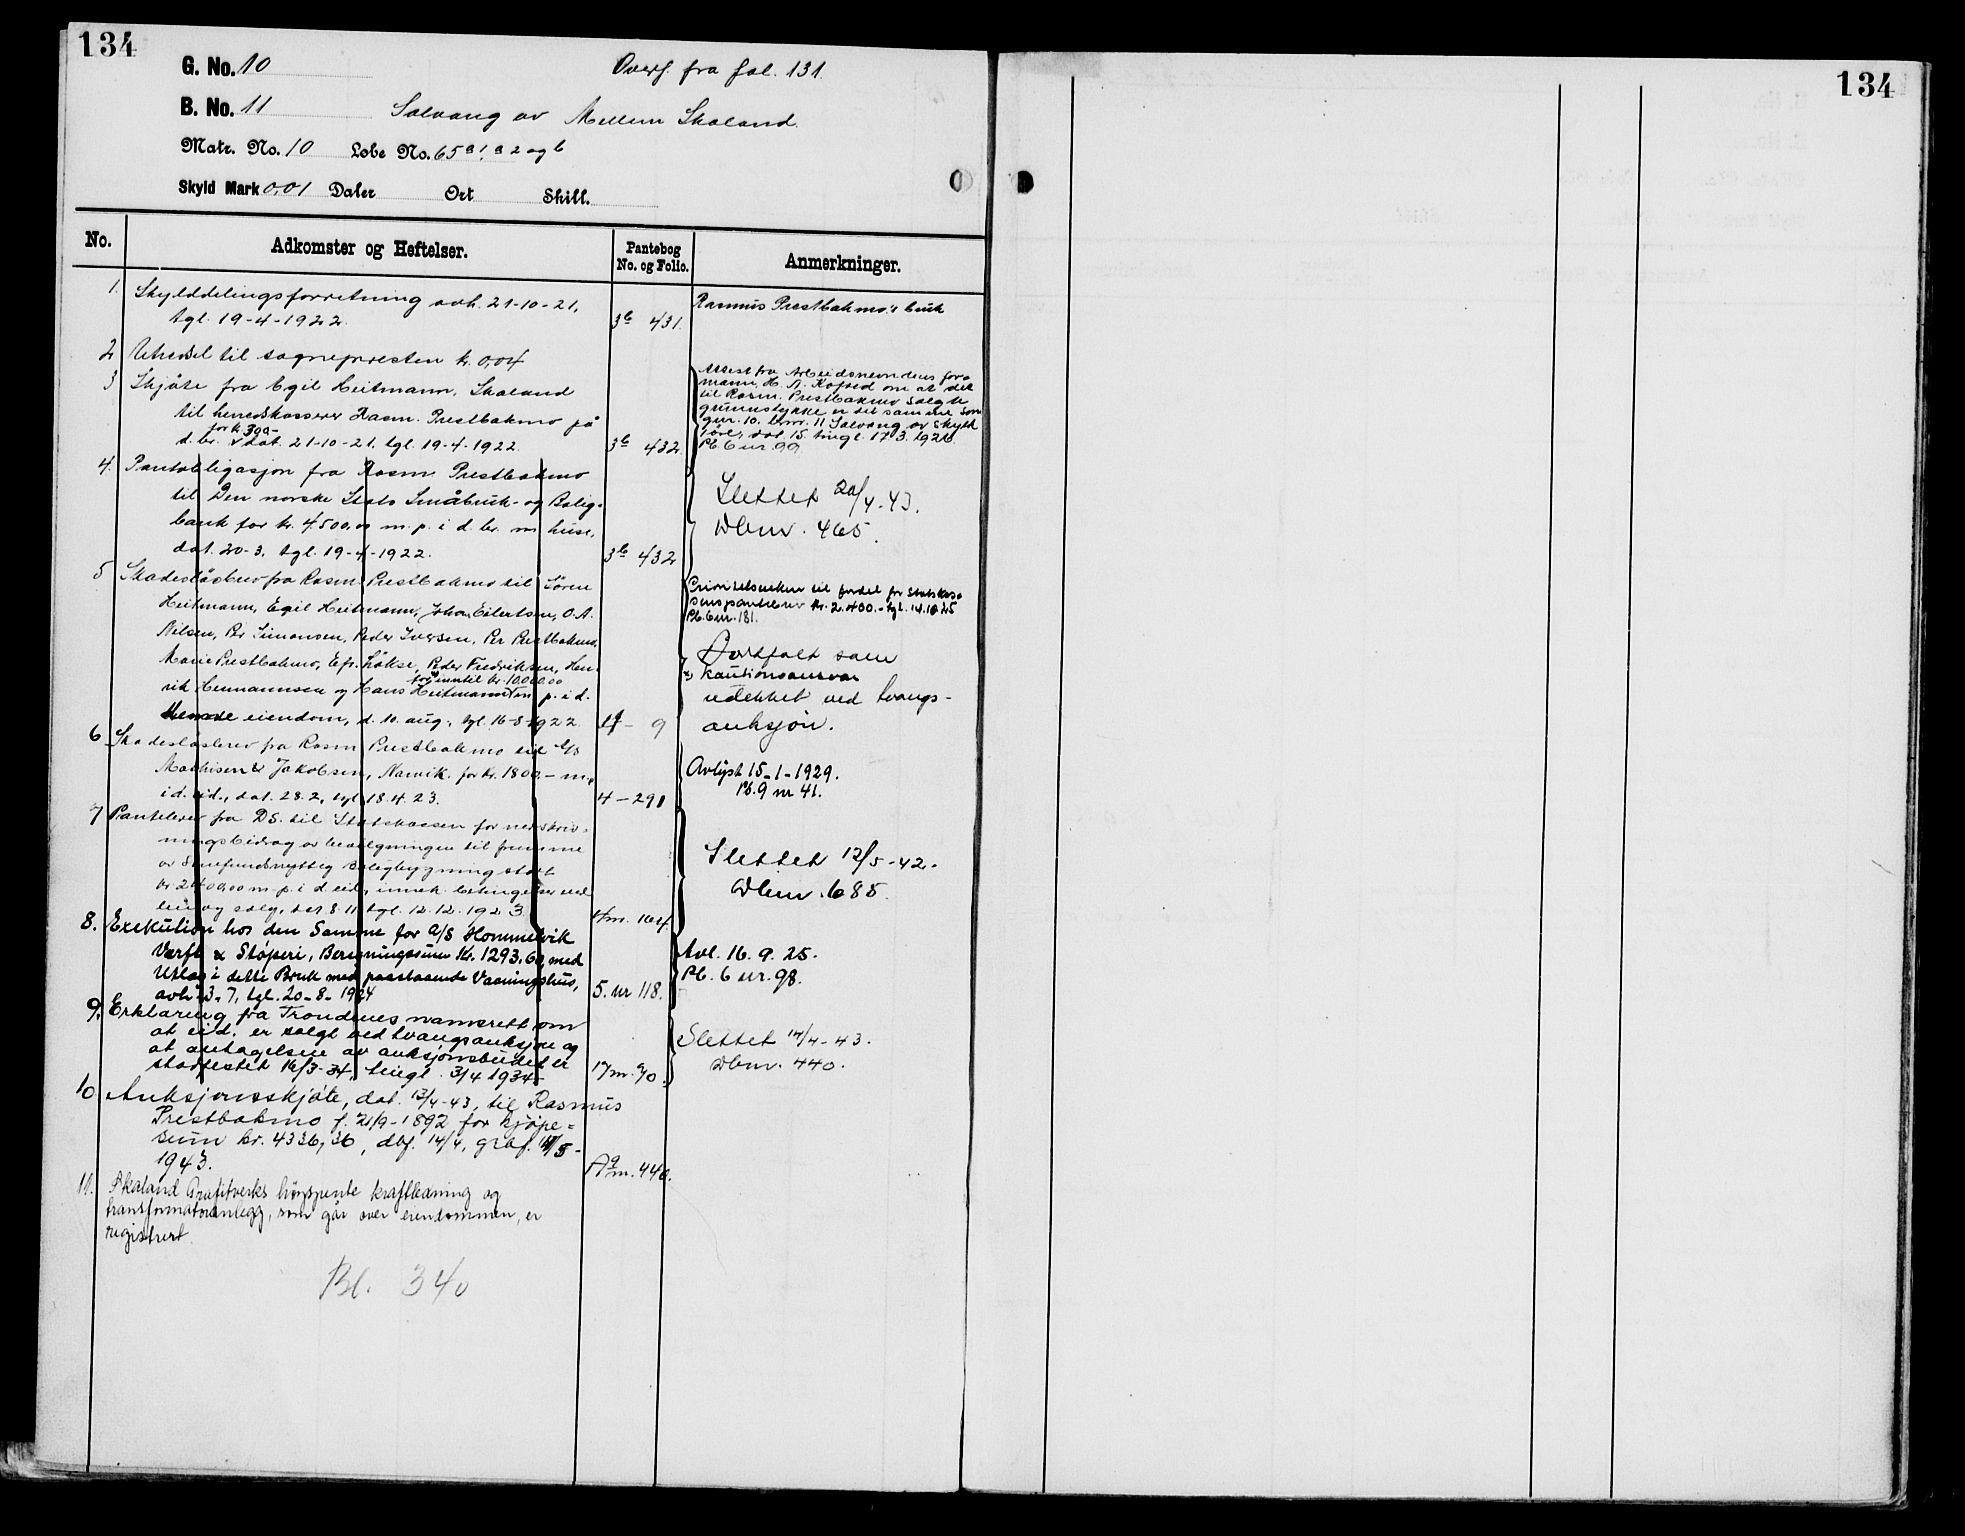 134
G. No. 10 Overf. fra fol. 131.
B. No. 11 Solvang av Mellem Skaland.
Matr. No. 10 Løbe No. 65 a1, a2 og b
Skyld Mark 0,01 Daler Ort Skill.
No. Adkomster og Heftelser. Pantebog No. og Folio. Anmerkninger.
1. Skylddelingsforretning avh. 21-10-21, Rasmus Prestbakmo's bruk
tgl. 19-4-1922. 3b 431.
2 til sognepresten kr. 0,04
3 Skjøte fra Egil Heitmann, Skaland
til herredskasserer Rasm. Prestbakmo på
for kr. 300-
d. br. dat. 21-10-21, tgl. 19-4-1922. 3b 432.
Attest fra Arbeidsnevndens for-
mann, H. A. Kofoed om at det
til Rasm. Prestbakmo solgte
grunnstykke er det samme som
gnr. 10, brnr. 11 Solvang av skyld
1 øre, dat. 15. tingl. 17.3.1926.
Pb. 6 nr. 99
4. Pantobligasjon fra Rasm. Prestbakmo
til Den norske Stats Småbruk- og Bolig-
bank for kr. 4500,00 m. p. i d. br. m huse,
dat. 20-3, tgl. 19-4-1922. 3b 432
Slettet 20/4-43.
Dbnr. 465.
5 Skadesløsbrev fra Rasm. Prestbakmo til Sören
Heitmann, Egil Heitmann, Johan Eilertsen, O. A.
Nilsen, Per Simonsen, Peder Iversen, Per Prestbakmo,
Marie Prestbakmo, Efr. Løkse, Peder Fredriksen, Hen-
for inntil kr. 10.000,00
rik Hermannsen og Hans Heitmann m. p. i d.
eiendom, d. 10. aug., tgl. 16-8-1922 9
Prioritetsvikem til fordel for statskas-
sens pantebrev kr. 2.400.- tgl. 14.10.25
Pb. 6 nr. 181.
Bortfalt som
kautionsansvar
udekket ved tvangs-
auksjon.
6 Skadesløsbrev fra Rasm. Prestbakmo til A/S
Mathisen & Jakobsen, Narvik. for kr. 1800.- m. p.
i d. eid., dat. 28.2, tgl. 18.4.23. 4-291
Avlyst 15-1-1929.
Pb. 9 nr 41.
7 Pantebrev fra D.S. til Statskassen for nedskriv-
ningsbidrag av bevilgningen til fremme
av samfundsnyttig boligbygning stort
kr. 2400,00 m. p. i d. eid., inneh. betingelser ved
leie og salg, dat 8.11. tgl. 12.12.1923. 4 nr. 164.
Slettet 12/5-42.
Dbnr. 685.
8. Exekution hos den Samme for A/S Hommelvik
Værft & Støperi, Beregningssum Kr. 1293.60, med
Utlæg i dette Bruk med paastaaende Vaaningshus,
avh. 3-7, tgl. 20-8-1924 5. nr 118.
Avl. 16.9.25.
Pb. 6 nr. 98.
9. Erklæring fra Trondenes namsrett om
at eid. er solgt ved tvangsauksjon og
at antagelsen av auksjonsbudet er
stadfestet 16/3-34, tingl. 3/4 1934- 17 nr. 90.
Slettet 14/4-43.
Dbnr. 440.
10. Auksjonsskjøte, dat. 13/4-43, til Rasmus
Prestbakmo f. 21/9-1892 for kjøpe-
sum kr. 4336,36, dbf. 14/4, grbf. 11/5-
1943. A9 nr. 440.
11. Skaland Grafitverks høyspente kraftledning og
transformatoranlegg, som går over eiendommen, er
registrert.
Bl. 340
134